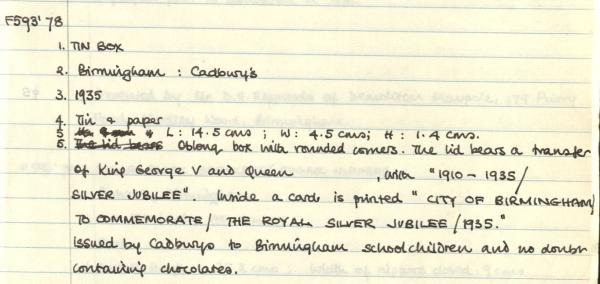 F593'78
1. TIN BOX
2. Birmingham : Cadbury's
3. 1935
4. Tin & paper
5 L: 14.5 cms ; W: 4.5 cms; H: 1.4 cms.
5. The lid bears Oblong box with rounded corners. The lid bears a transfer
of King George V and Queen , with "1910-1935/
SILVER JUBILEE". Inside a card is printed "CITY OF BIRMINGHAM/
TO COMMEMORATE/ THE ROYAL SILVER JUBILEE/1935."
Issued by Cadburys to Birmingham schoolchildren and no doubt
containing chocolates.